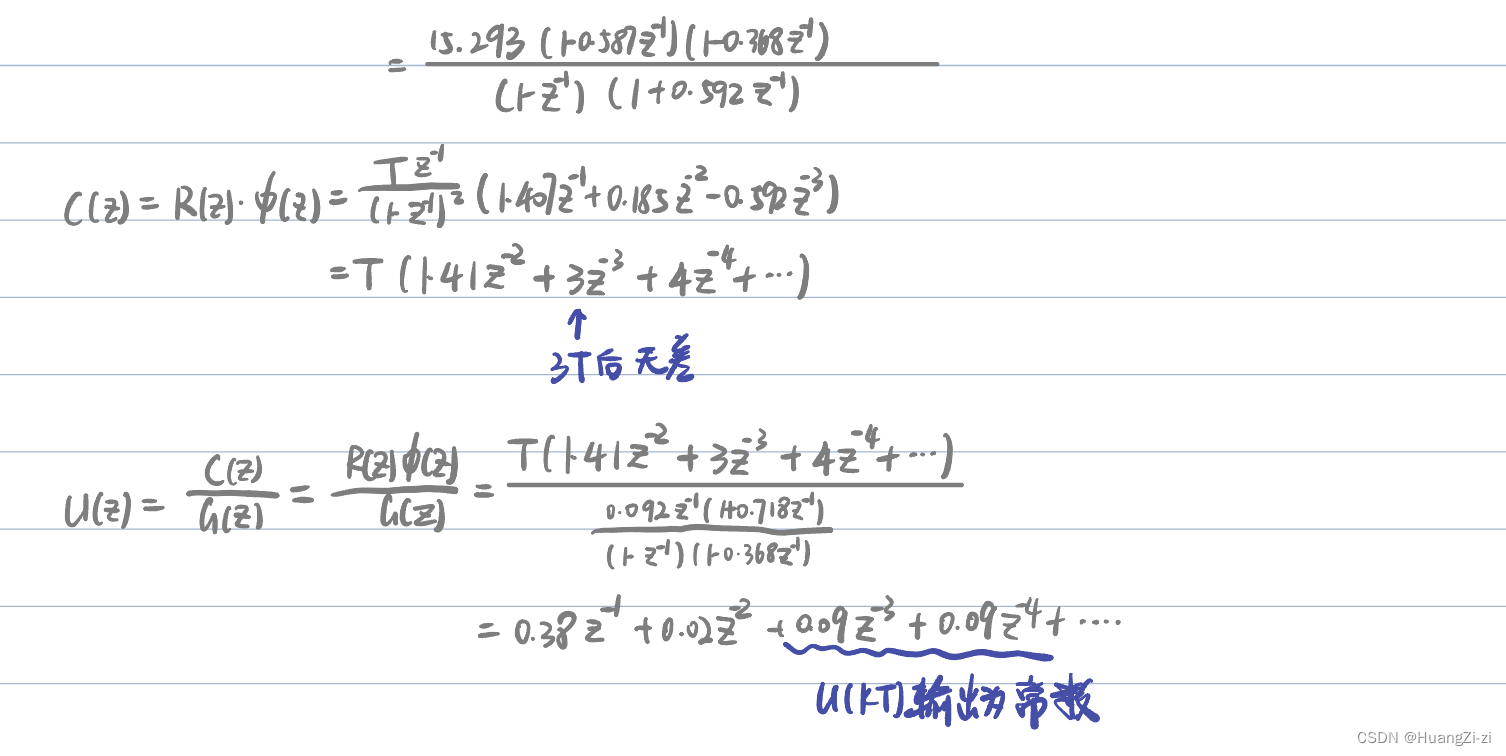 = \frac{15.293 (1-0.587z^{-1})(1-0.368z^{-1})}{(1-z^{-1}) (1+0.592z^{-1})}
C(z) = R(z)·φ(z) = \frac{Tz^{-1}}{(1-z^{-1})^2} (1.407z^{-1}+0.185z^{-2}-0.592z^{-3})
= T (1.41z^{-2} + 3z^{-3} + 4z^{-4} + ···)
↑
3T后无差
U(z) = \frac{C(z)}{G(z)} = \frac{R(z)φ(z)}{G(z)} = \frac{T(1.41z^{-2} + 3z^{-3} + 4z^{-4} + ···)}{\frac{0.092z^{-1}(1+0.718z^{-1})}{(1-z^{-1})(1-0.368z^{-1})}}
= 0.38z^{-1} + 0.02z^{-2} + 0.09z^{-3} + 0.09z^{-4} + ····
U(kT)输出为常数
CSDN @HuangZi-zi